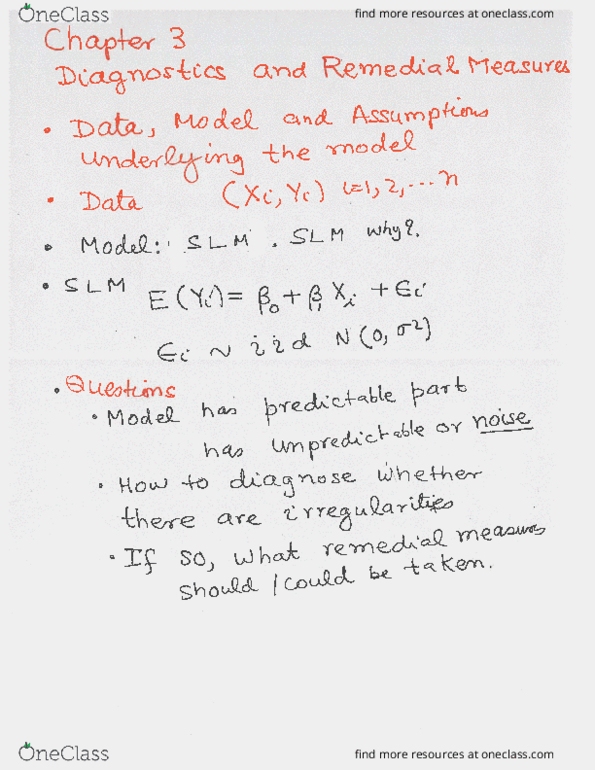 OneClass
find more resources at oneclass.com
Chapter 3
Diagnostics and Remedial Measures
• Data, Model and Assumptions
underlying the model
• Data (Xi, Yi) i=1, 2, ... n
• Model: SLM . SLM why?.
• SLM E(Yi) = β0 + β1 Xi + Ei
Ei ~ iid N(0, σ2)
• Questions
• Model has predictable part
has unpredictable or noise
• How to diagnose whether
there are irregularities
• If so, what remedial measures
should / could be taken.
OneClass
find more resources at oneclass.com